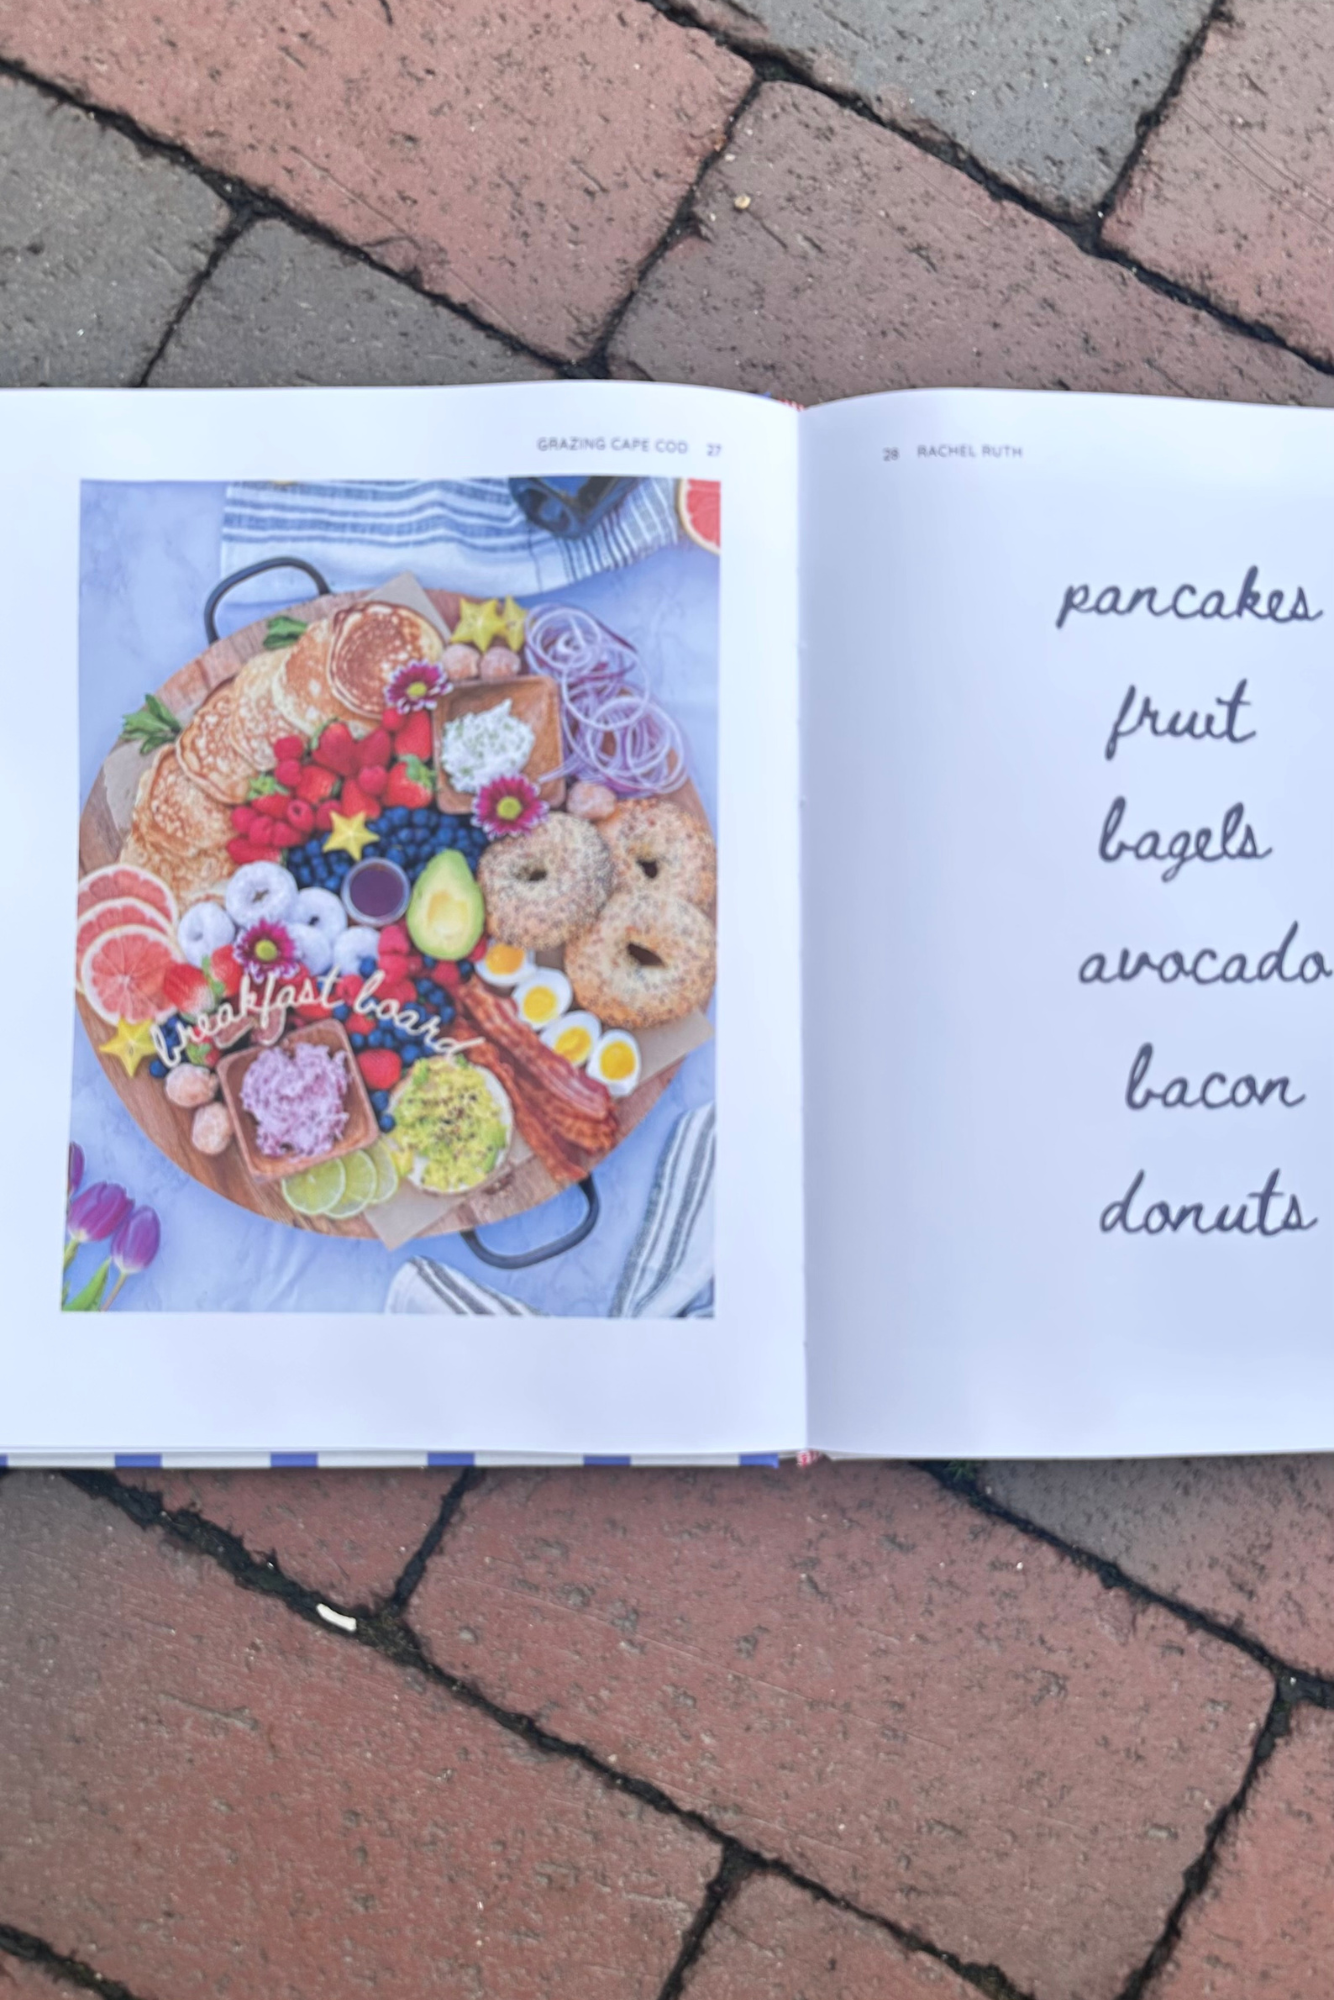 GRAZING CAPE COD 27
breakfast board
28 RACHEL RUTH
pancakes
fruit
bagels
avocado
bacon
donuts